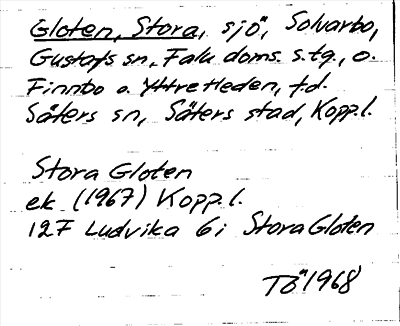 Gloten, Stora, sjö, Solvarbo,
Gustafs sn, Falu doms. s.tg., o.
Finnbo o. Yttretleden, f.d.
Säters sn, Säters stad, Kopp.l.
Stora Gloten
ek (1967) Kopp.l.
12F Ludvika 6i Stora Gloten
Tö 1968